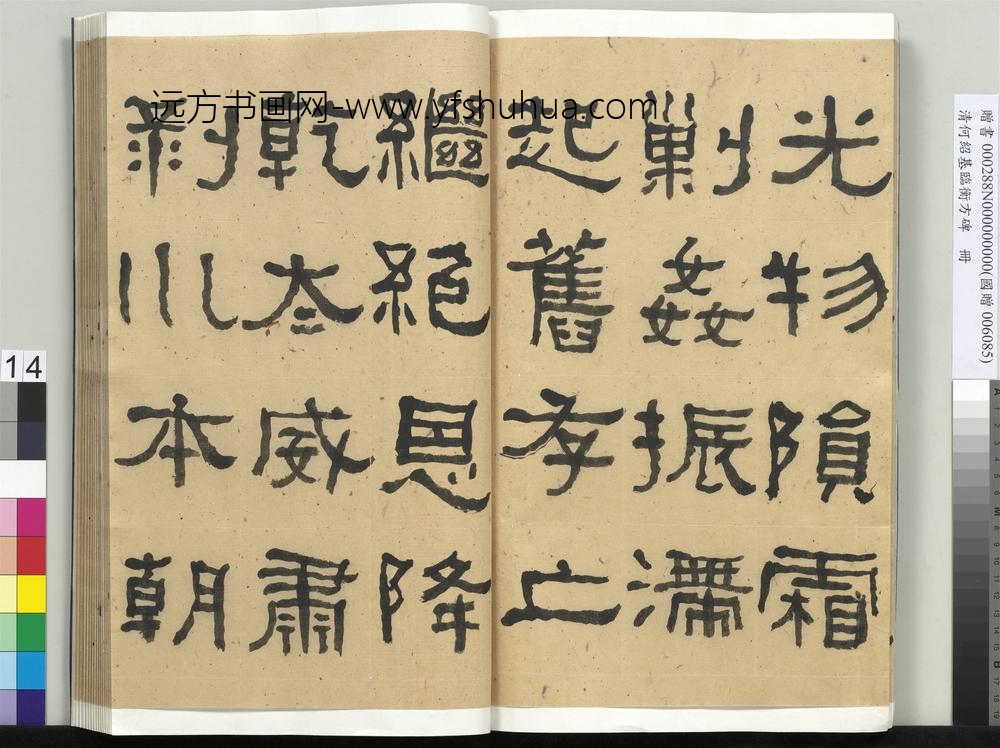 远方书画网-www.yfshuhua.com
光物隕霜
剿姦振滯
起舊存亡
繼絕恩降
乾太威肅
剝川本朝
贈書 000288N000000000(國贈 006085)
清何紹基臨衡方碑 冊
14